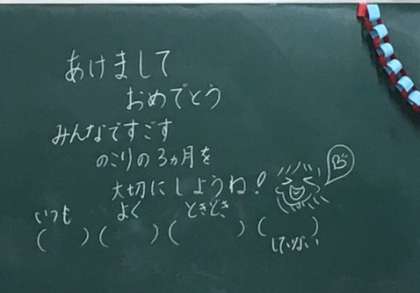 あけまして
おめでとう
みんなですごす
のこりの3ヵ月を
大切にしようね!
いつも よく ときどき
(  )(  )(  )(  )
していない